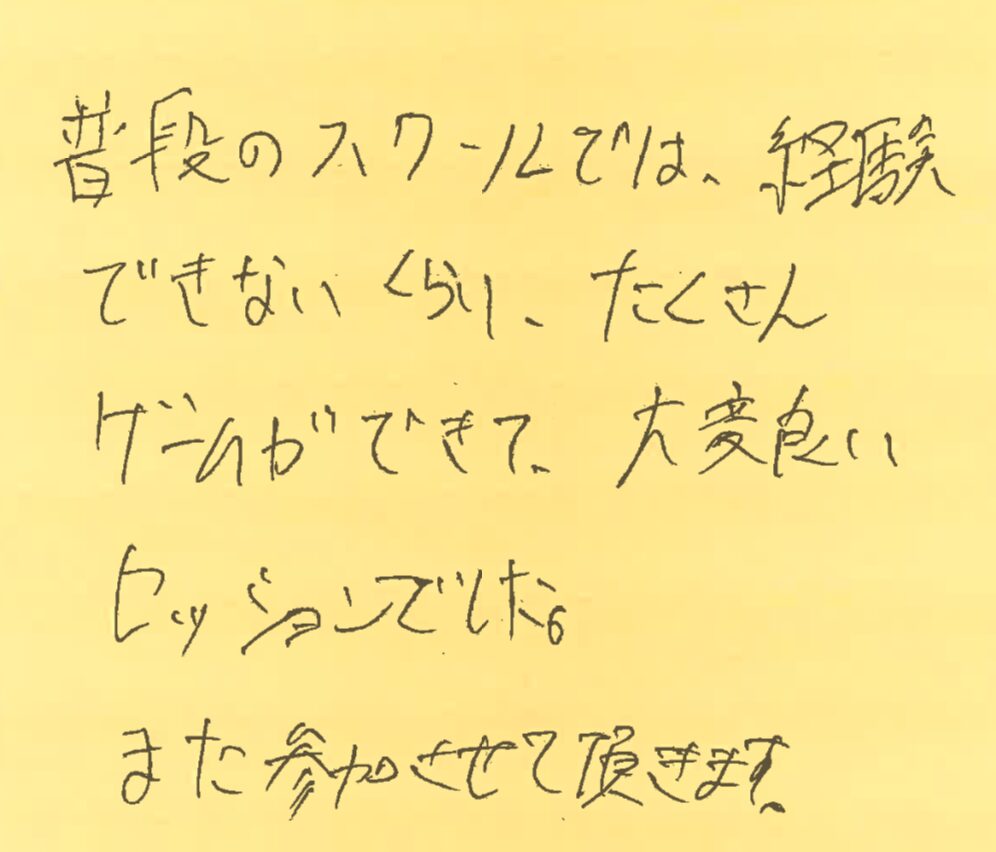 普段のスクールでは、経験
できないくらい、たくさん
ゲームができて、大変良い
セッションでした。
また参加させて頂きます。